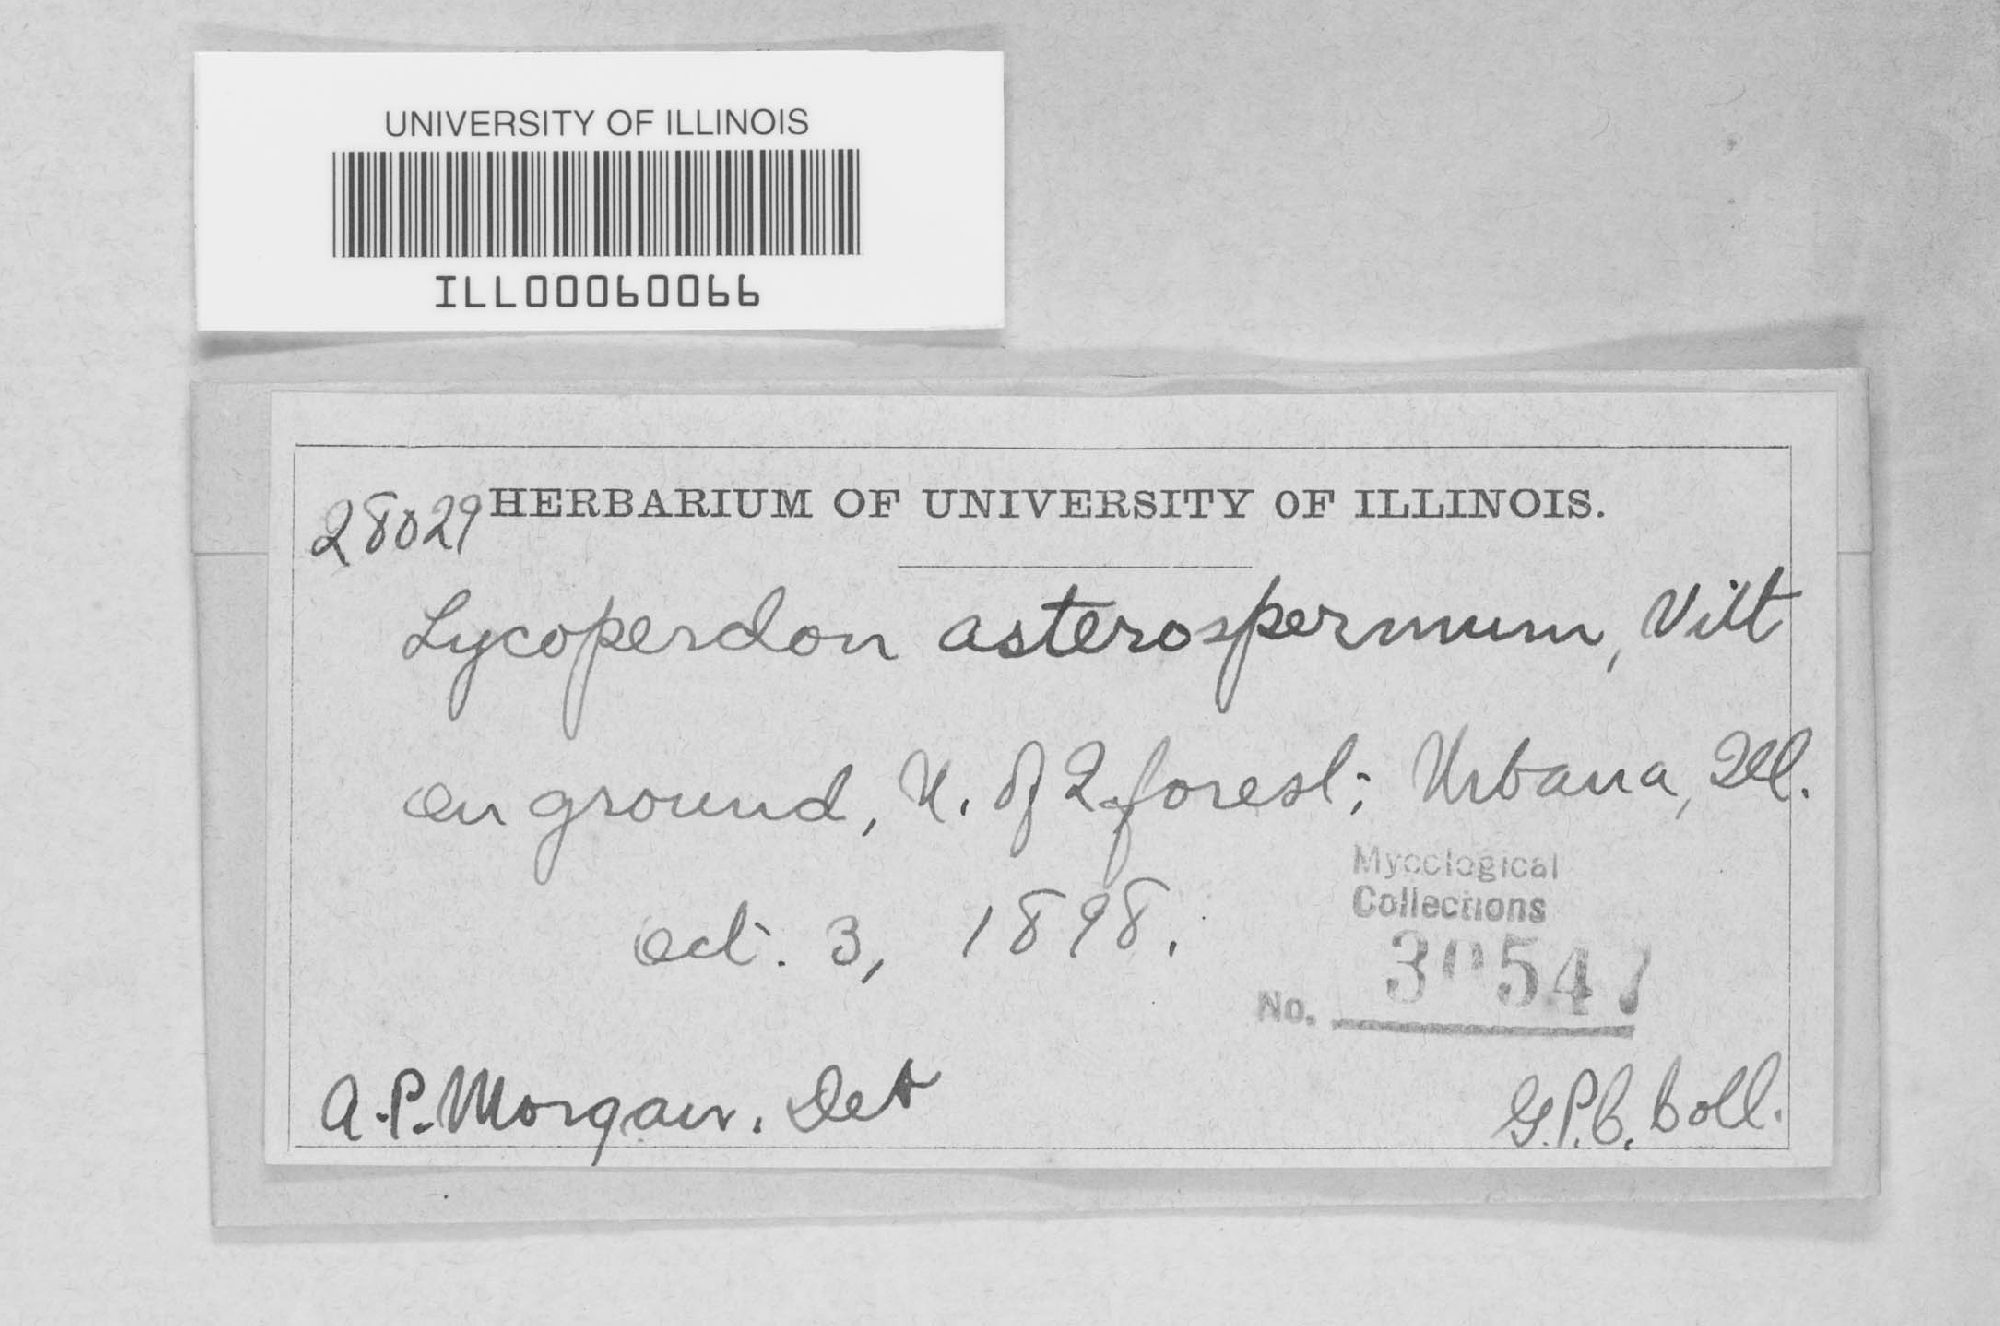 UNIVERSITY OF ILLINOIS
ILL00060066
28029 HERBARIUM OF UNIVERSITY OF ILLINOIS.
Lycoperdon asterospermum, Vitt
on ground, U. of I. forest; Urbana, Ill.
Oct. 3, 1898.
Mycological
Collections
No. 30547
A.P. Morgan. Det
G.P.C. Coll.